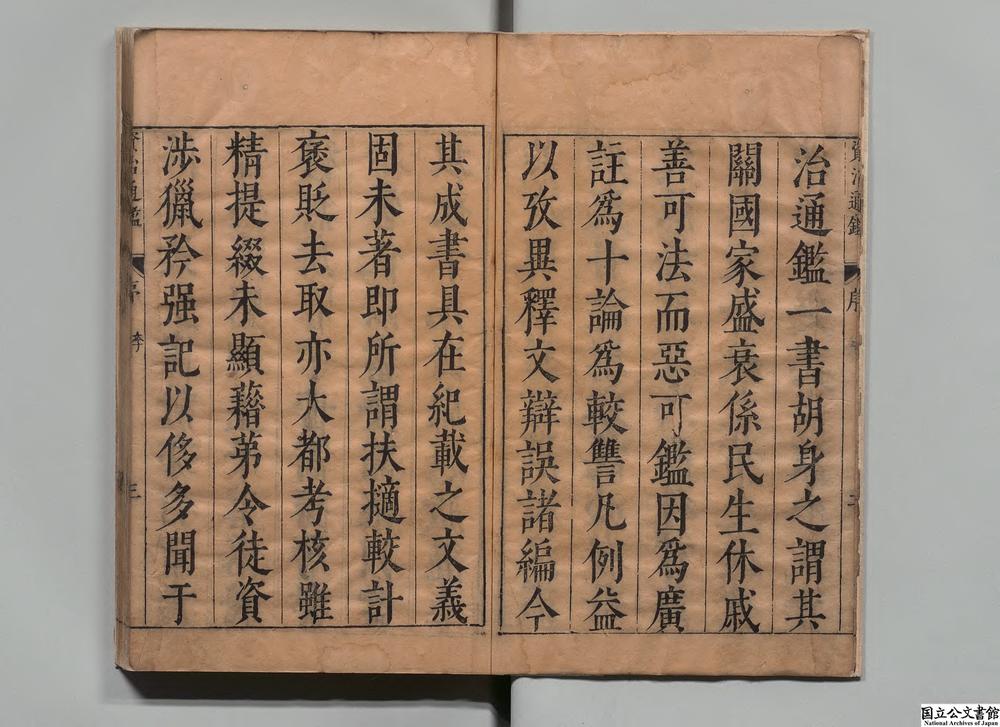 資治通鑑 序
治通鑑一書胡身之謂其
關國家盛衰係民生休戚
善可法而惡可鑑因爲廣
註爲十論爲較讐凡例益
以攷異釋文辯誤諸編今
其成書具在紀載之文義
固未著即所謂扶擿較計
褒貶去取亦大都考核雖
精提綴未顯藉弟令徒資
渉獵矜强記以侈多聞于
資治通鑑 序 三
国立公文書館
National Archives of Japan